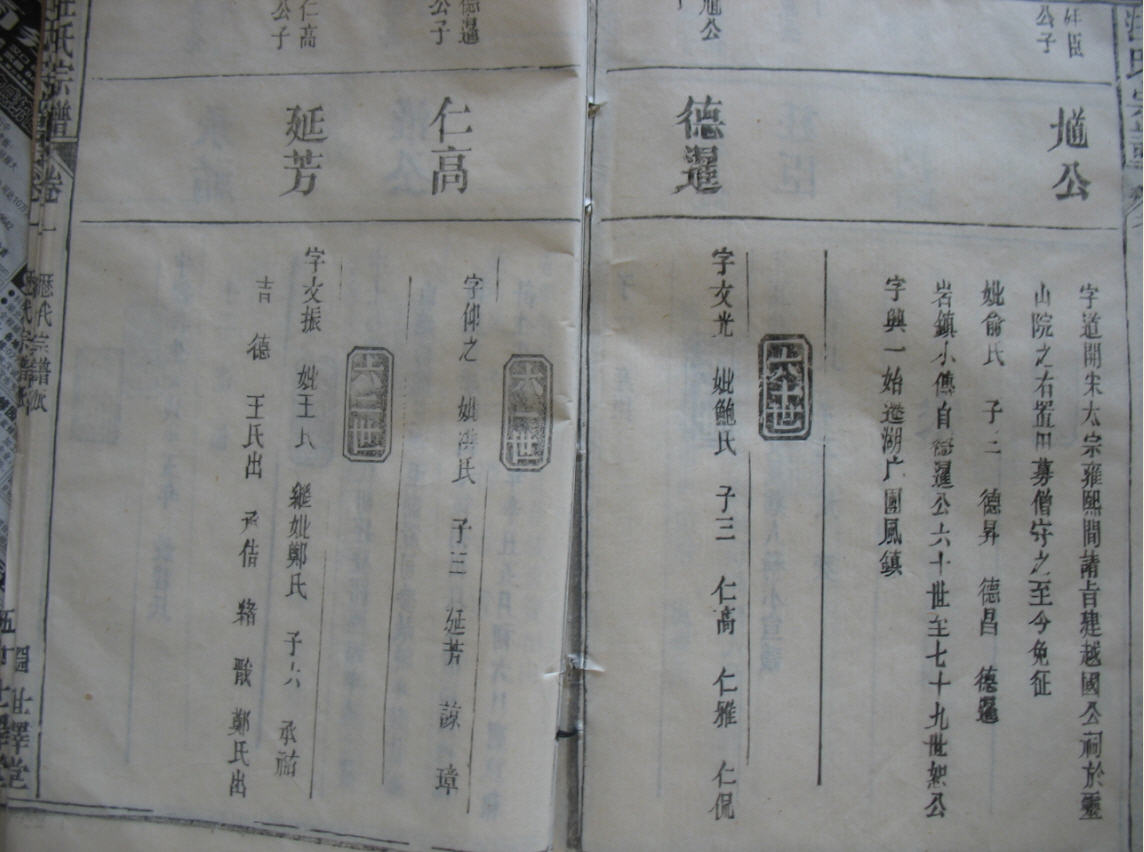 公子
馗公
字道開宋太宗雍熙間請旨建越國公祠於靈
山院之右置田募僧守之至今免征
妣俞氏 子三 德昇 德昌 德暹
岩鎮小傳自德暹公六十世至七十九世恕公
字興一始遷湖广團風鎮
馗公
德暹
六十世
字文光 妣鮑氏 子三 仁高 仁雅 仁侃
德暹
公子
仁高
六一世
字仰之 妣洪氏 子三 延芳 諒 璋
仁高
公子
延芳
六二世
字文振 妣王氏 繼妣鄭氏 子六 承祐
吉 德 王氏出 承佶 輅 戩 鄭氏出
汪氏宗譜 卷一
歷代宗譜
世譯堂